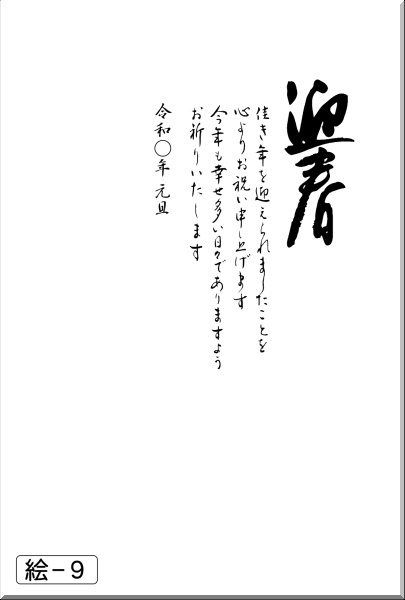 迎春
佳き年を迎えられましたことを
心よりお祝い申し上げます
今年も幸せ多い日々でありますよう
お祈りいたします
令和〇年 元旦
絵-9